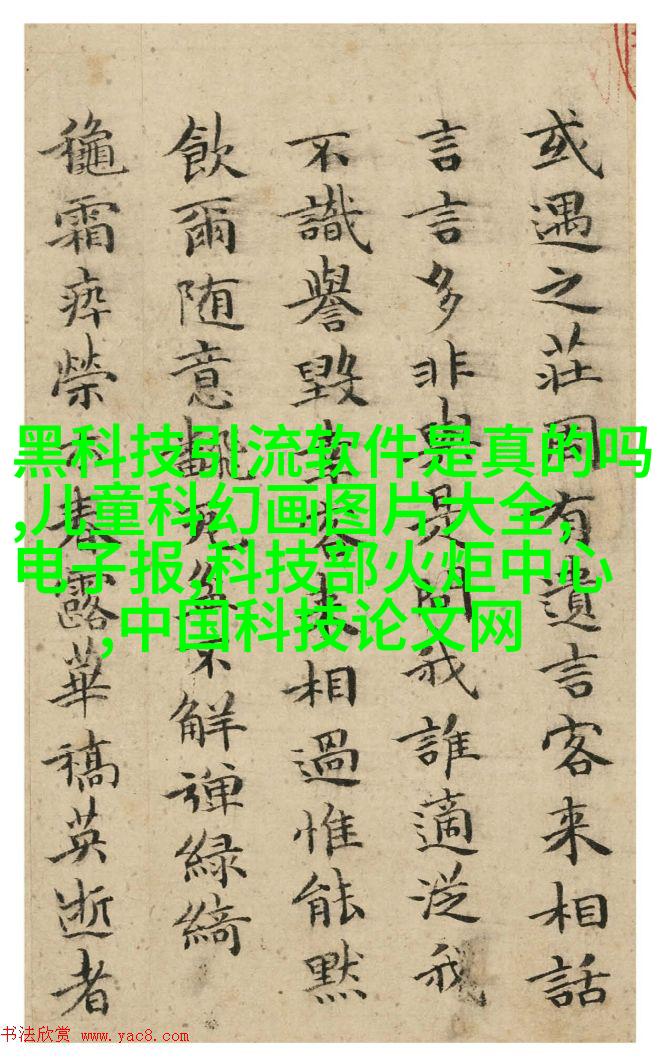 或遇之莊周有遺言客来相話
言言多非與是問我誰適從我
不識譽毀
来相過惟能黙
飲爾随意
不解彈緑綺
穐霜瘁榮
春露華稿英逝者
黑科技引流软件是真的吗
,儿童科幻画图片大全,
电子报,科技部火炬中心
,中国科技论文网
书法欣赏 www.yac8.com